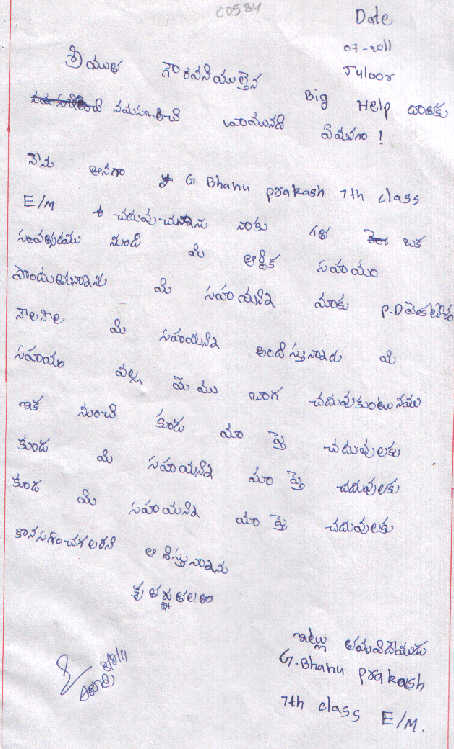 C0584
Date
07-2011
Tuloor
శ్రీయుత గౌరవనీయులైన Big Help వారికు
నమస్కరించి వ్రాయునది ఏమనగా !
నేను అనగా G. Bhanu prakash 7th class
E/M చదువుచున్నాను నాకు గత ఒక
సంవత్సరము నుండి మీ ఆర్థిక సహాయం
పొందుతున్నాను మీ సహాయన్ని మాకు P.D
నెలనెల మీ సహాయన్ని అందిస్తున్నారు మీ
సహాయం వల్ల మేము బాగ చదువుకుంటున్నాము
ఇక నుంచి కూడు మా పై చదువులకు
కుండ మీ సహాయన్ని మా పై చదువులకు
కూడ మీ సహాయన్ని మా పై చదువులకు
కొనసాగించగలరని ఆశిస్తున్నాను
కృతజ్ఞతలతో
ఇట్లు తమవిదేయుడు
G. Bhanu prakash
7th class E/M.